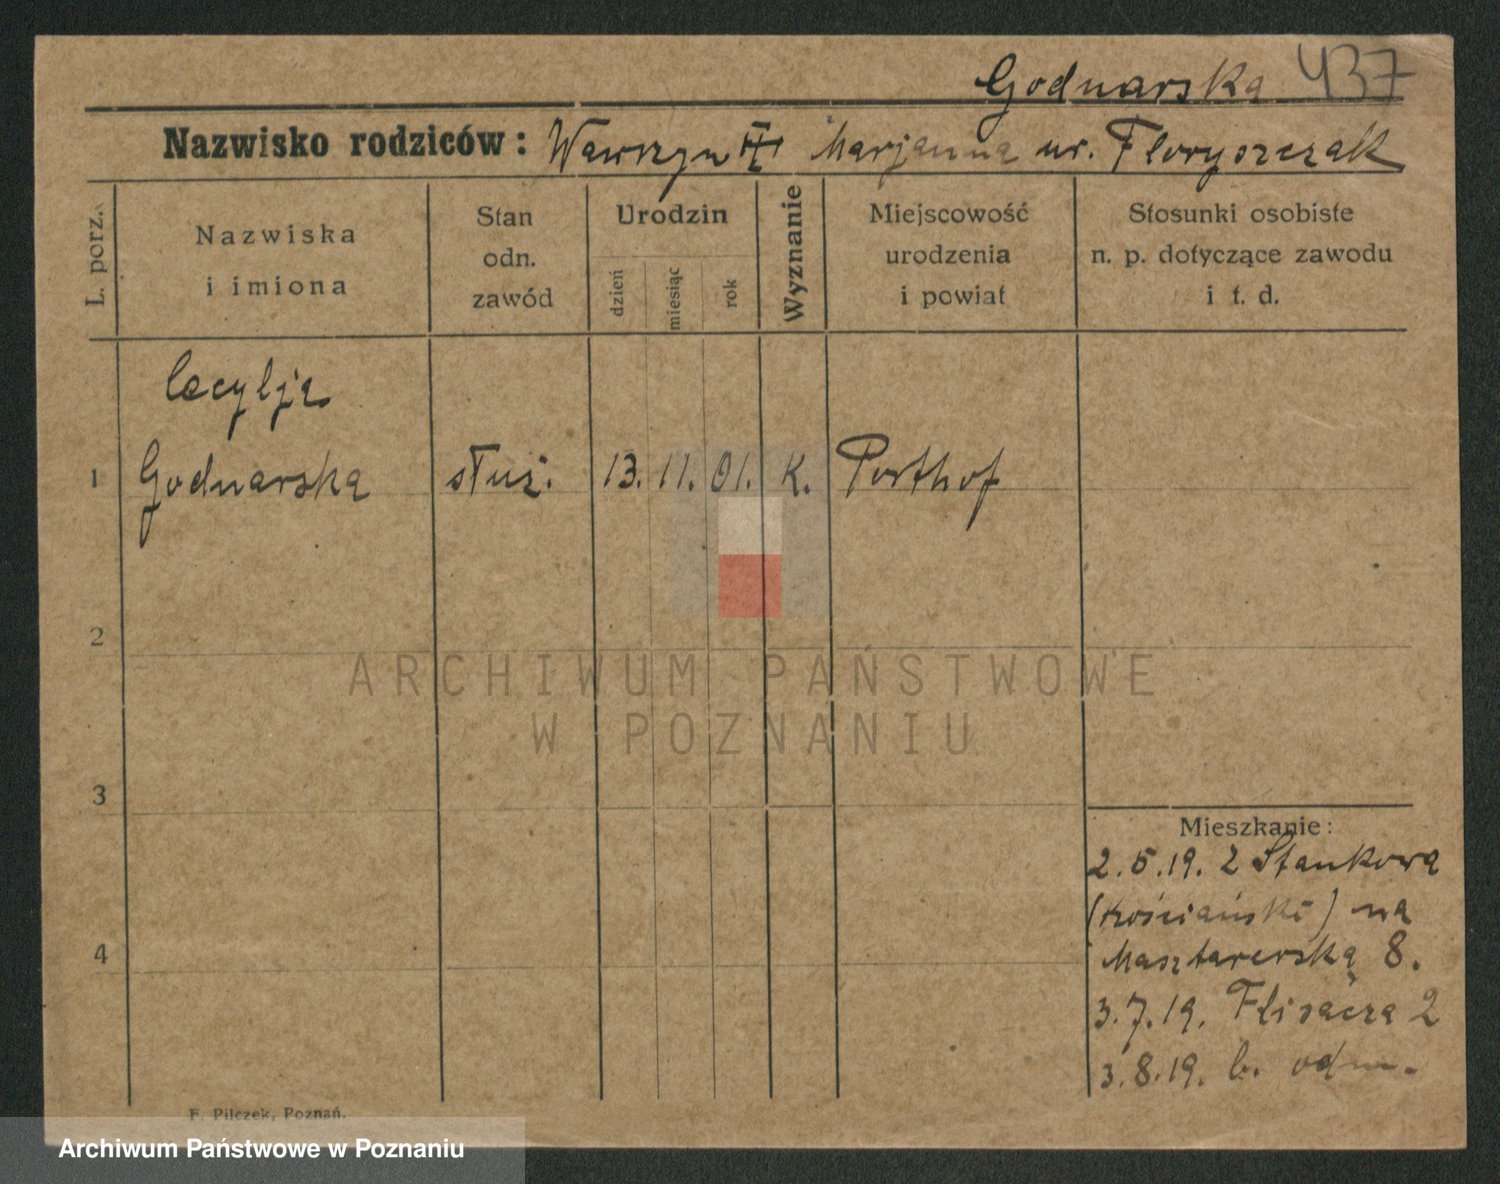 Godnarska 437
Nazwisko rodziców: Wawrzyn Marjanna ur. Floryszczak
L. porz.
Nazwiska
i imiona
Stan
odn.
zawód
Urodzin
dzień
miesiąc
rok
Wyznanie
Miejscowość
urodzenia
i powiat
Stosunki osobiste
n. p. dotyczące zawodu
i t. d.
Cecylja
1 Godnarska służ. 13. 11. 01. K. Posthof
2
ARCHIWUM PAŃSTWOWE
W POZNANIU
3
Mieszkanie:
2.5.19. Z Stankowa
(Kościański) na
Masztarerską 8.
4
3.7.19. Flisacza 2
3.8.19. b. odm.
F. Pilczek, Poznań.
Archiwum Państwowe w Poznaniu